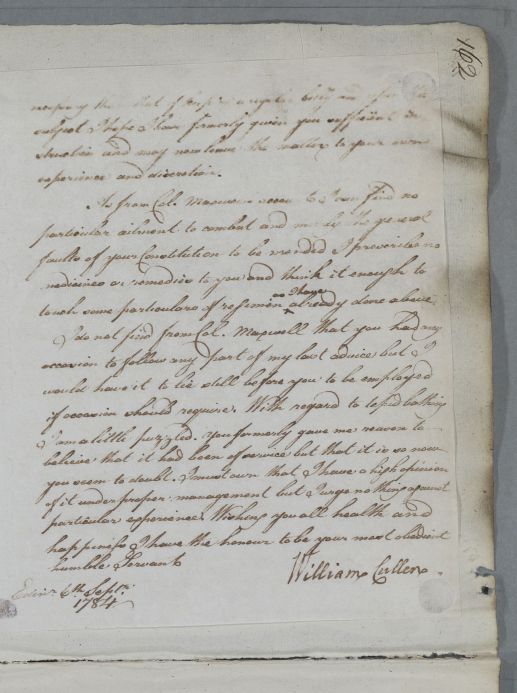 162
subject I hope I have formerly given you sufficient in
struction and may now leave the matter to your own
experience and discretion.
As from Col. Maxwell I can find no
particular ailment to combat and merely the general
faults of your Constitution to be mended I prescribe no
medicines or remedies to you and think it enough to
touch some particulars of regimen as I have already done above.
I do not find from Col. Maxwell that you had any
occasion to follow any part of my last advice but I
would have it to lie still before you to be employed
if occasion should require. With regard to tepid bathing
I am a little puzzled. You formerly gave me reason to
believe that it had been of service but that it is so now
you seem to doubt. I must own that I have a high opinion
of it under proper management but I urge nothing against
particular experience. Wishing you all health and
happiness I have the honour to be your most obedient
humble Servant
William Cullen
Edinr. 6th. Septr.
1784